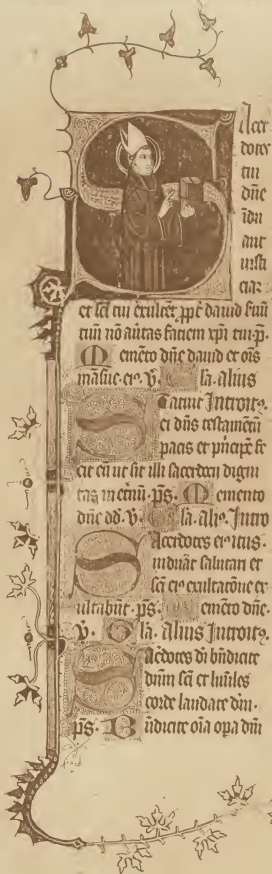 acer
dotes
tui
dn̄e
idu
ant
iusti
ciaꝫ
et sc̄i tui exultēt. ꝓpt̄ dauid suū
tuū nō au̾tas faciem xp̄i tui. p̄.
Memēto dn̄e dauid et oīs
māsue. eiꝰ. v̄. Gl̄a. alius
Statuit Introitꝰ.
ei dn̄s testamētū
pacis et pricipē fe
cit eū ut sit illi sacerdocii digni
tas in etnū. ps. Memento
dn̄e dd. v̄. Gl̄a. aliꝰ. Intro
Sacerdotes eiꝰ itus.
induāt salutari et
sc̄i eiꝰ exultatōne ex
ultabūt. ps. Memēto dn̄e.
v̄. Gl̄a. alius Introitꝰ.
Sacdotes di bn̄dicite
dn̄m sc̄i et huīles
corde laudate dm̄.
ps. Bn̄dicite oīa opa dn̄i